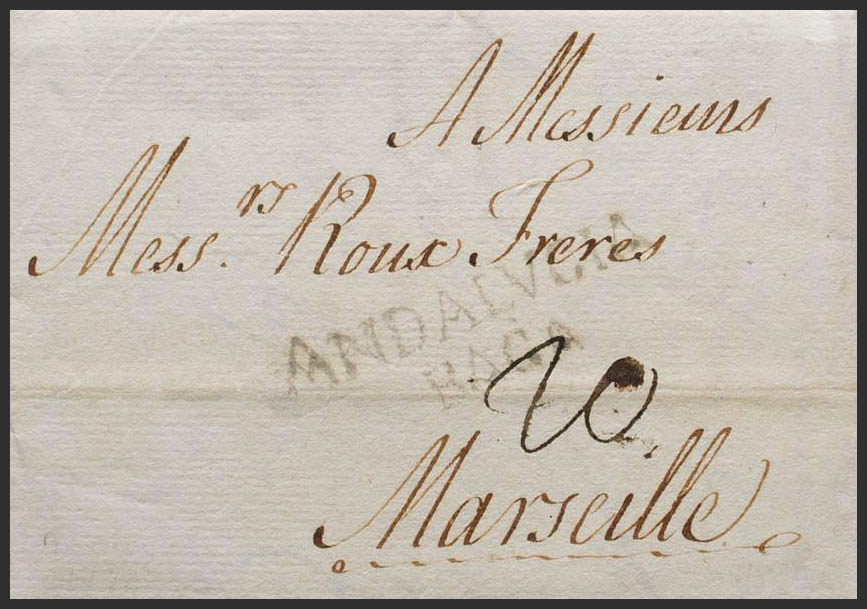 A Messieurs
Mess.rs Roux Freres
ANDALVCIA
BAXA
20
Marseille